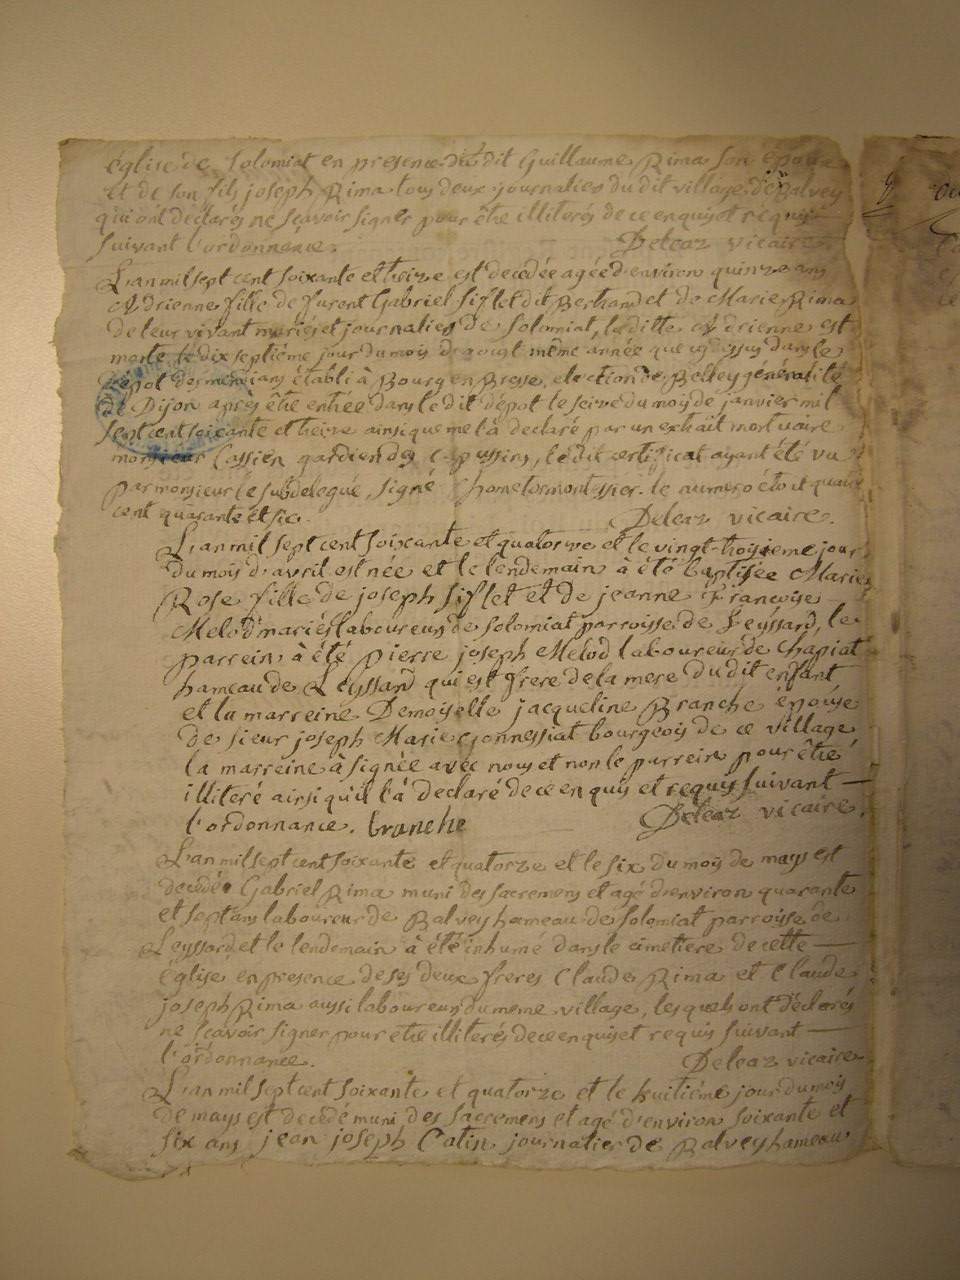 église de Solomiat en presence dudit Guillaume Rima son époux
et de son fils joseph Rima tous deux journaliers du dit village de Balvey
qui ont déclarés ne scavoir signer pour être illiterés de ce enquis et requis
suivant l'ordonnence. Deleaz vicaire
L'an mil sept cent soixante et treize est decedée agée d'environ quinze ans
Adrienne fille de furent Gabriel Siflet dit Bertrand et de Marie Rima
de leur vivant mariés et journaliers de Solomiat, la ditte Adrienne est
morte le dix septiéme jour du mois d'aoust même année que cydessus dans le
dépot des mendians établi à Bourg en Bresse, election de Belley generalité
de Dijon après être entrée dans le dit dépot le seize du mois de janvier mil
sept cent soixante et treize ainsi que me l'à declaré par un extrait mortuaire
monsieur Cassien gardien des Capussins, le dit certificat ayant été vu
par monsieur le subdelegué, signé le numero étoit quatre
cent quarante et six. Deleaz vicaire.
L'an mil sept cent soixante et quatorze et le vingt-troisieme jour
du mois d'avril est née et le lendemain à été baptisée Marie
Rose fille de joseph Siflet et de jeanne Francoise
Melod mariés laboureurs de Solomiat parroisse de Leyssard, le
parrein à été pierre joseph Melod laboureur de Chapiat
hameau de Leyssard qui est frere de la mere du dit enfant
et la marreine Demoiselle jacqueline Branche épouse
de sieur joseph Marie Gonnessiat bourgeois de ce village
la marreine à signée avec nous et non le parrein pour être
illiteré ainsi qu'il l'à declaré de ce enquis et requis suivant
l'ordonnance. branche Deleaz vicaire.
L'an mil sept cent soixante et quatorze et le six du mois de mays est
decedé Gabriel Rima muni des sacremens et agé d'environ quarante
et sept ans laboureur de Balvey hameau de Solomiat parroisse de
Leyssard, et le lendemain à été inhumé dans le cimetiere de cette
église en presence de ses deux freres Claude Rima et Claude
joseph Rima aussi laboureurs du meme village, lesquels ont déclarés
ne scavoir signer pour etre illiterés de ce enquis et requis suivant
l'ordonnance. Deleaz vicaire
L'an mil sept cent soixante et quatorze et le huitiéme jour du mois
de mays est decedé muni des sacremens et agé d'environ soixante et
six ans jean joseph Catin journalier de Balvey hameau